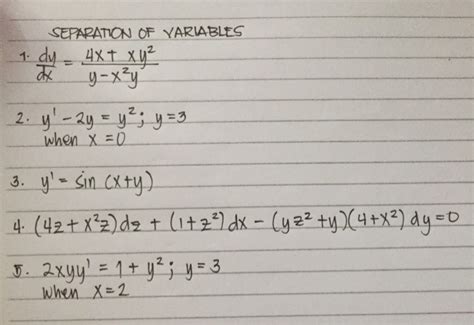 SEPARATION OF VARIABLES
1. dy/dx = (4x + xy²)/(y - x²y)
2. y' - 2y = y²; y = 3
when x = 0
3. y' = sin (x+y)
4. (4z + x²z) dz + (1+z²) dx - (yz² + y)(4+x²) dy = 0
5. 2xyy' = 1 + y²; y = 3
when x = 2